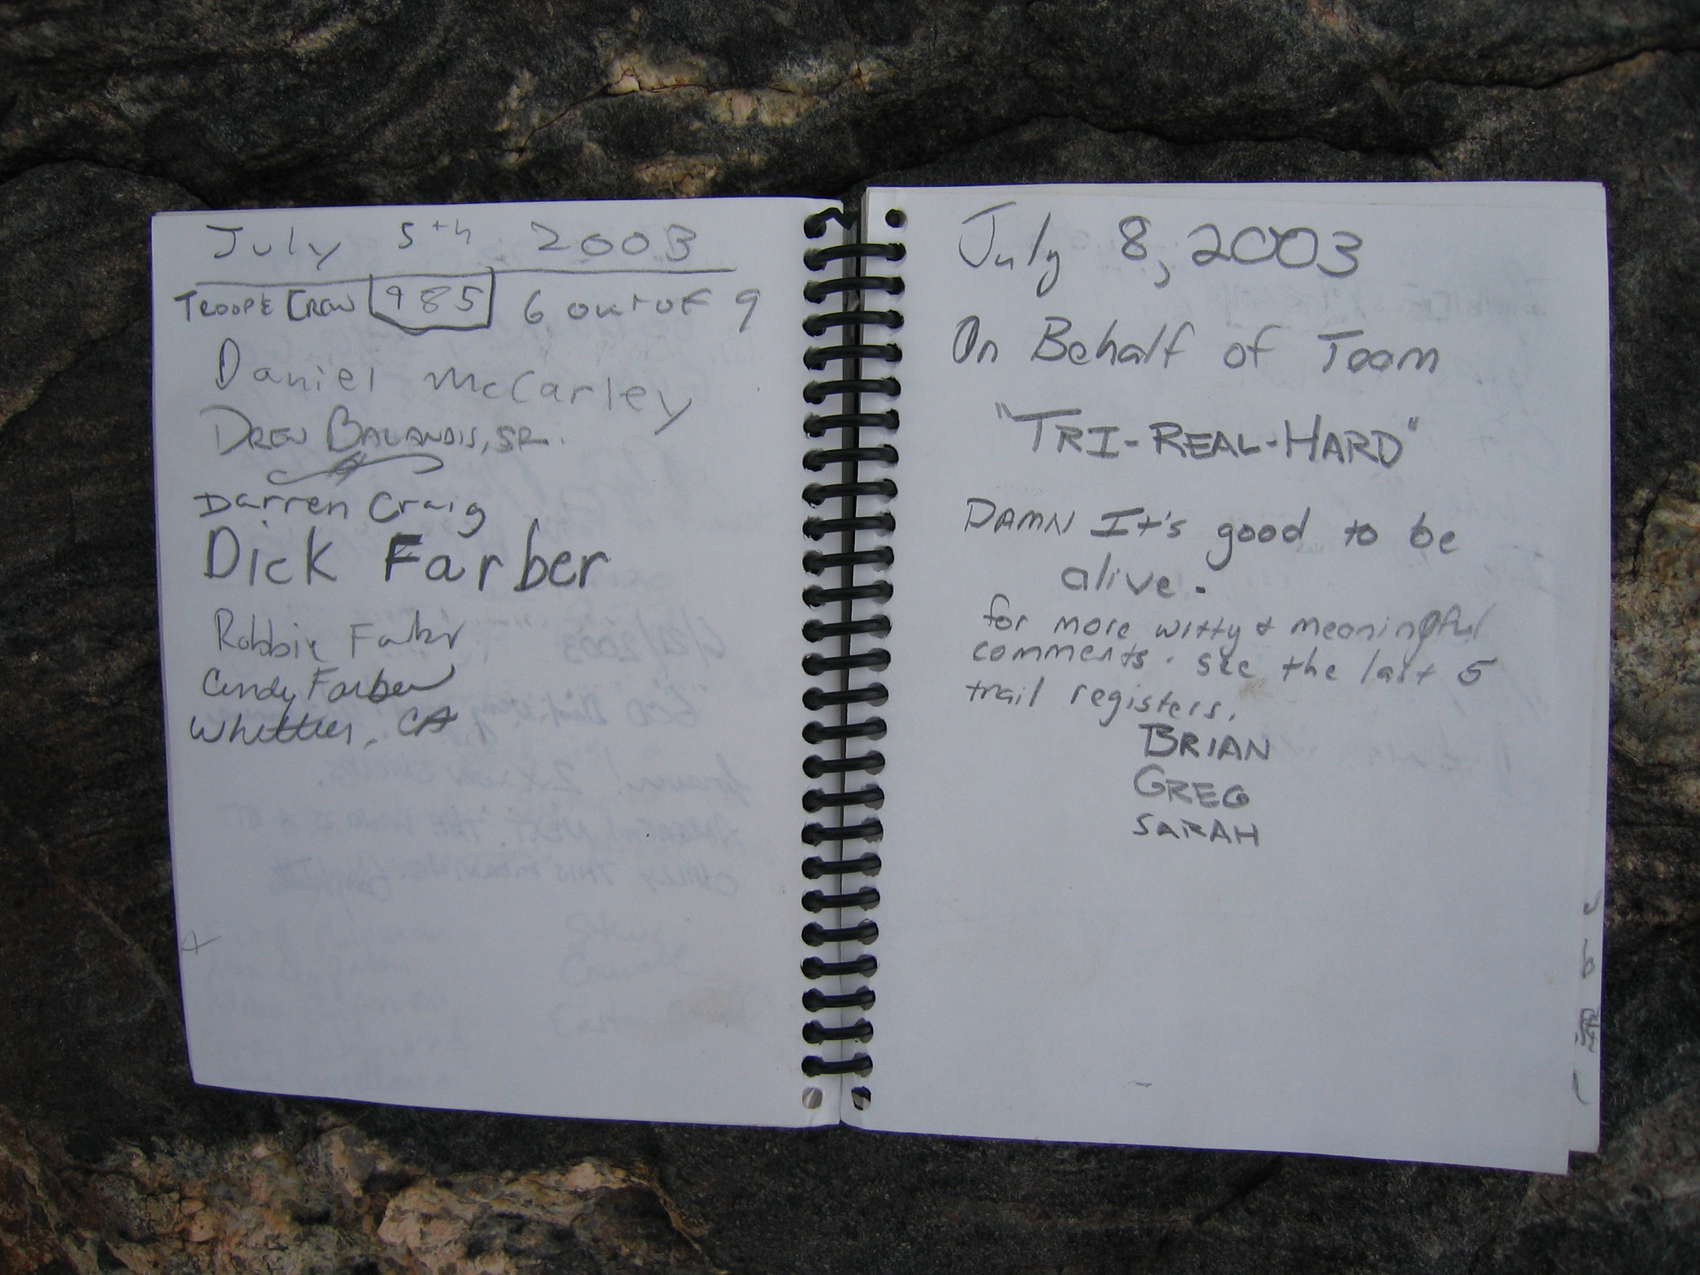 July 5th 2003
TROOP & CREW 985 6 out of 9
Daniel McCarley
DREW BALANDIS, SR.
Darren Craig
Dick Farber
Robbie Farber
Cindy Farber
Whittier, CA
July 8, 2003
On Behalf of Team
"TRI-REAL-HARD"
DAMN It's good to be
alive.
for more witty & meaningful
comments. see the last 5
trail registers.
BRIAN
GREG
SARAH